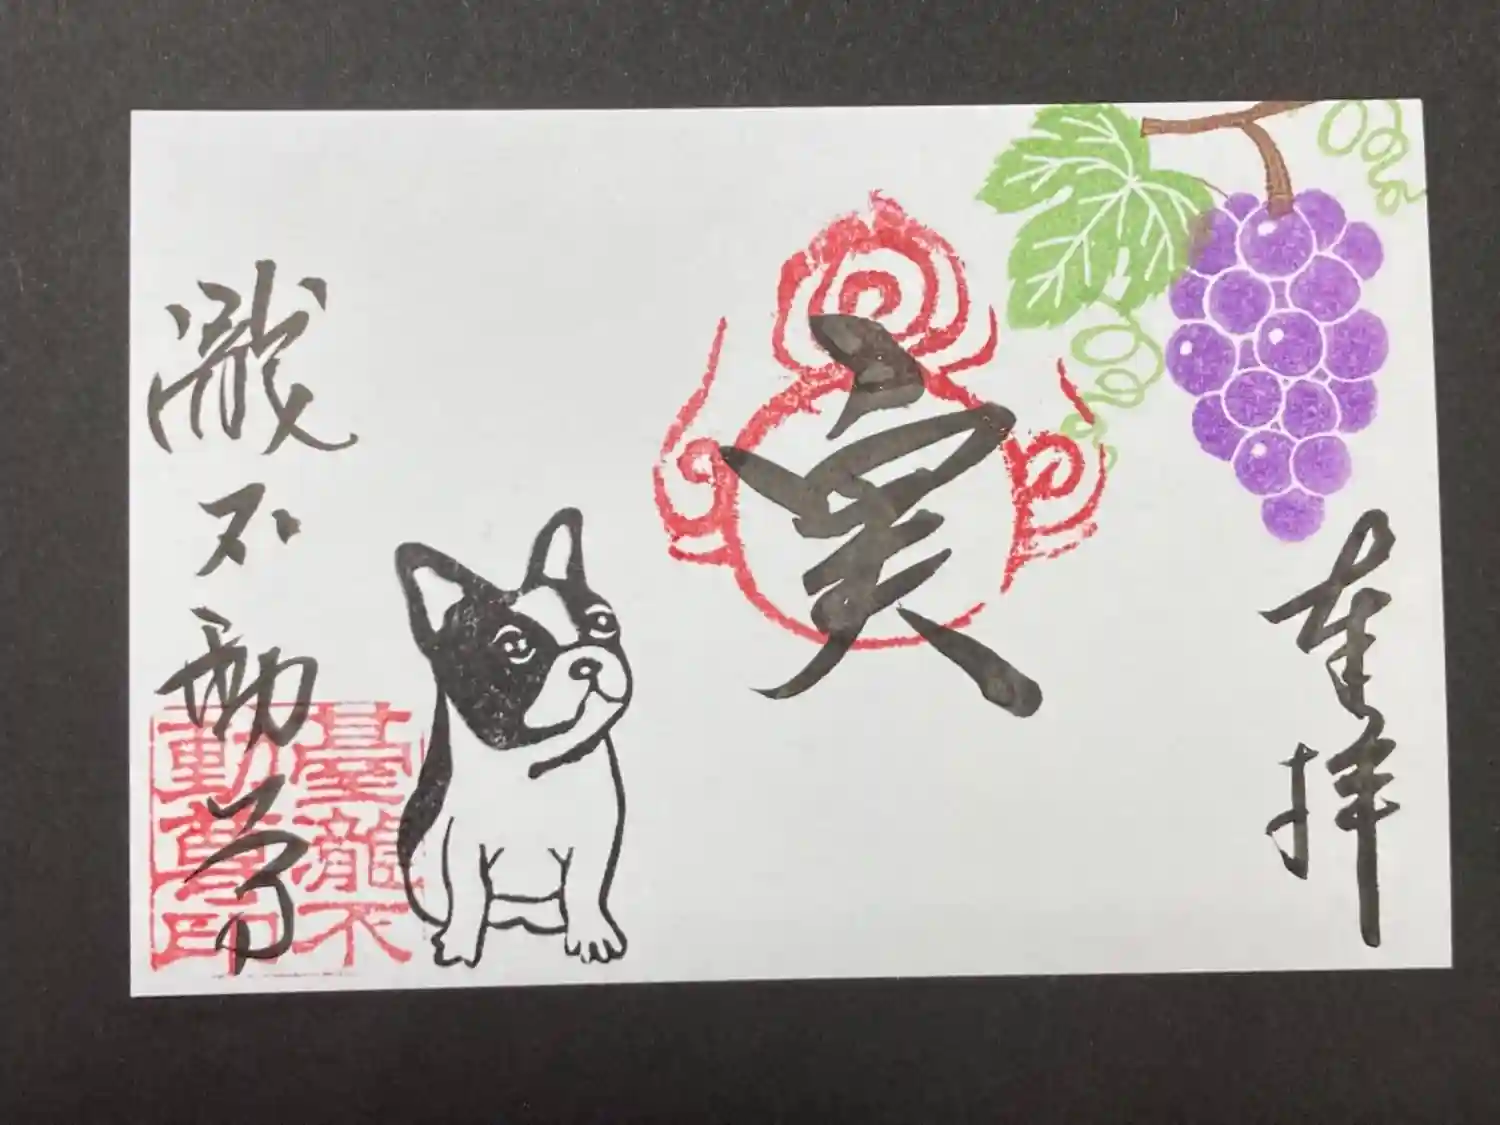 奉拝
実
瀧不動尊
臺龍不
動尊印